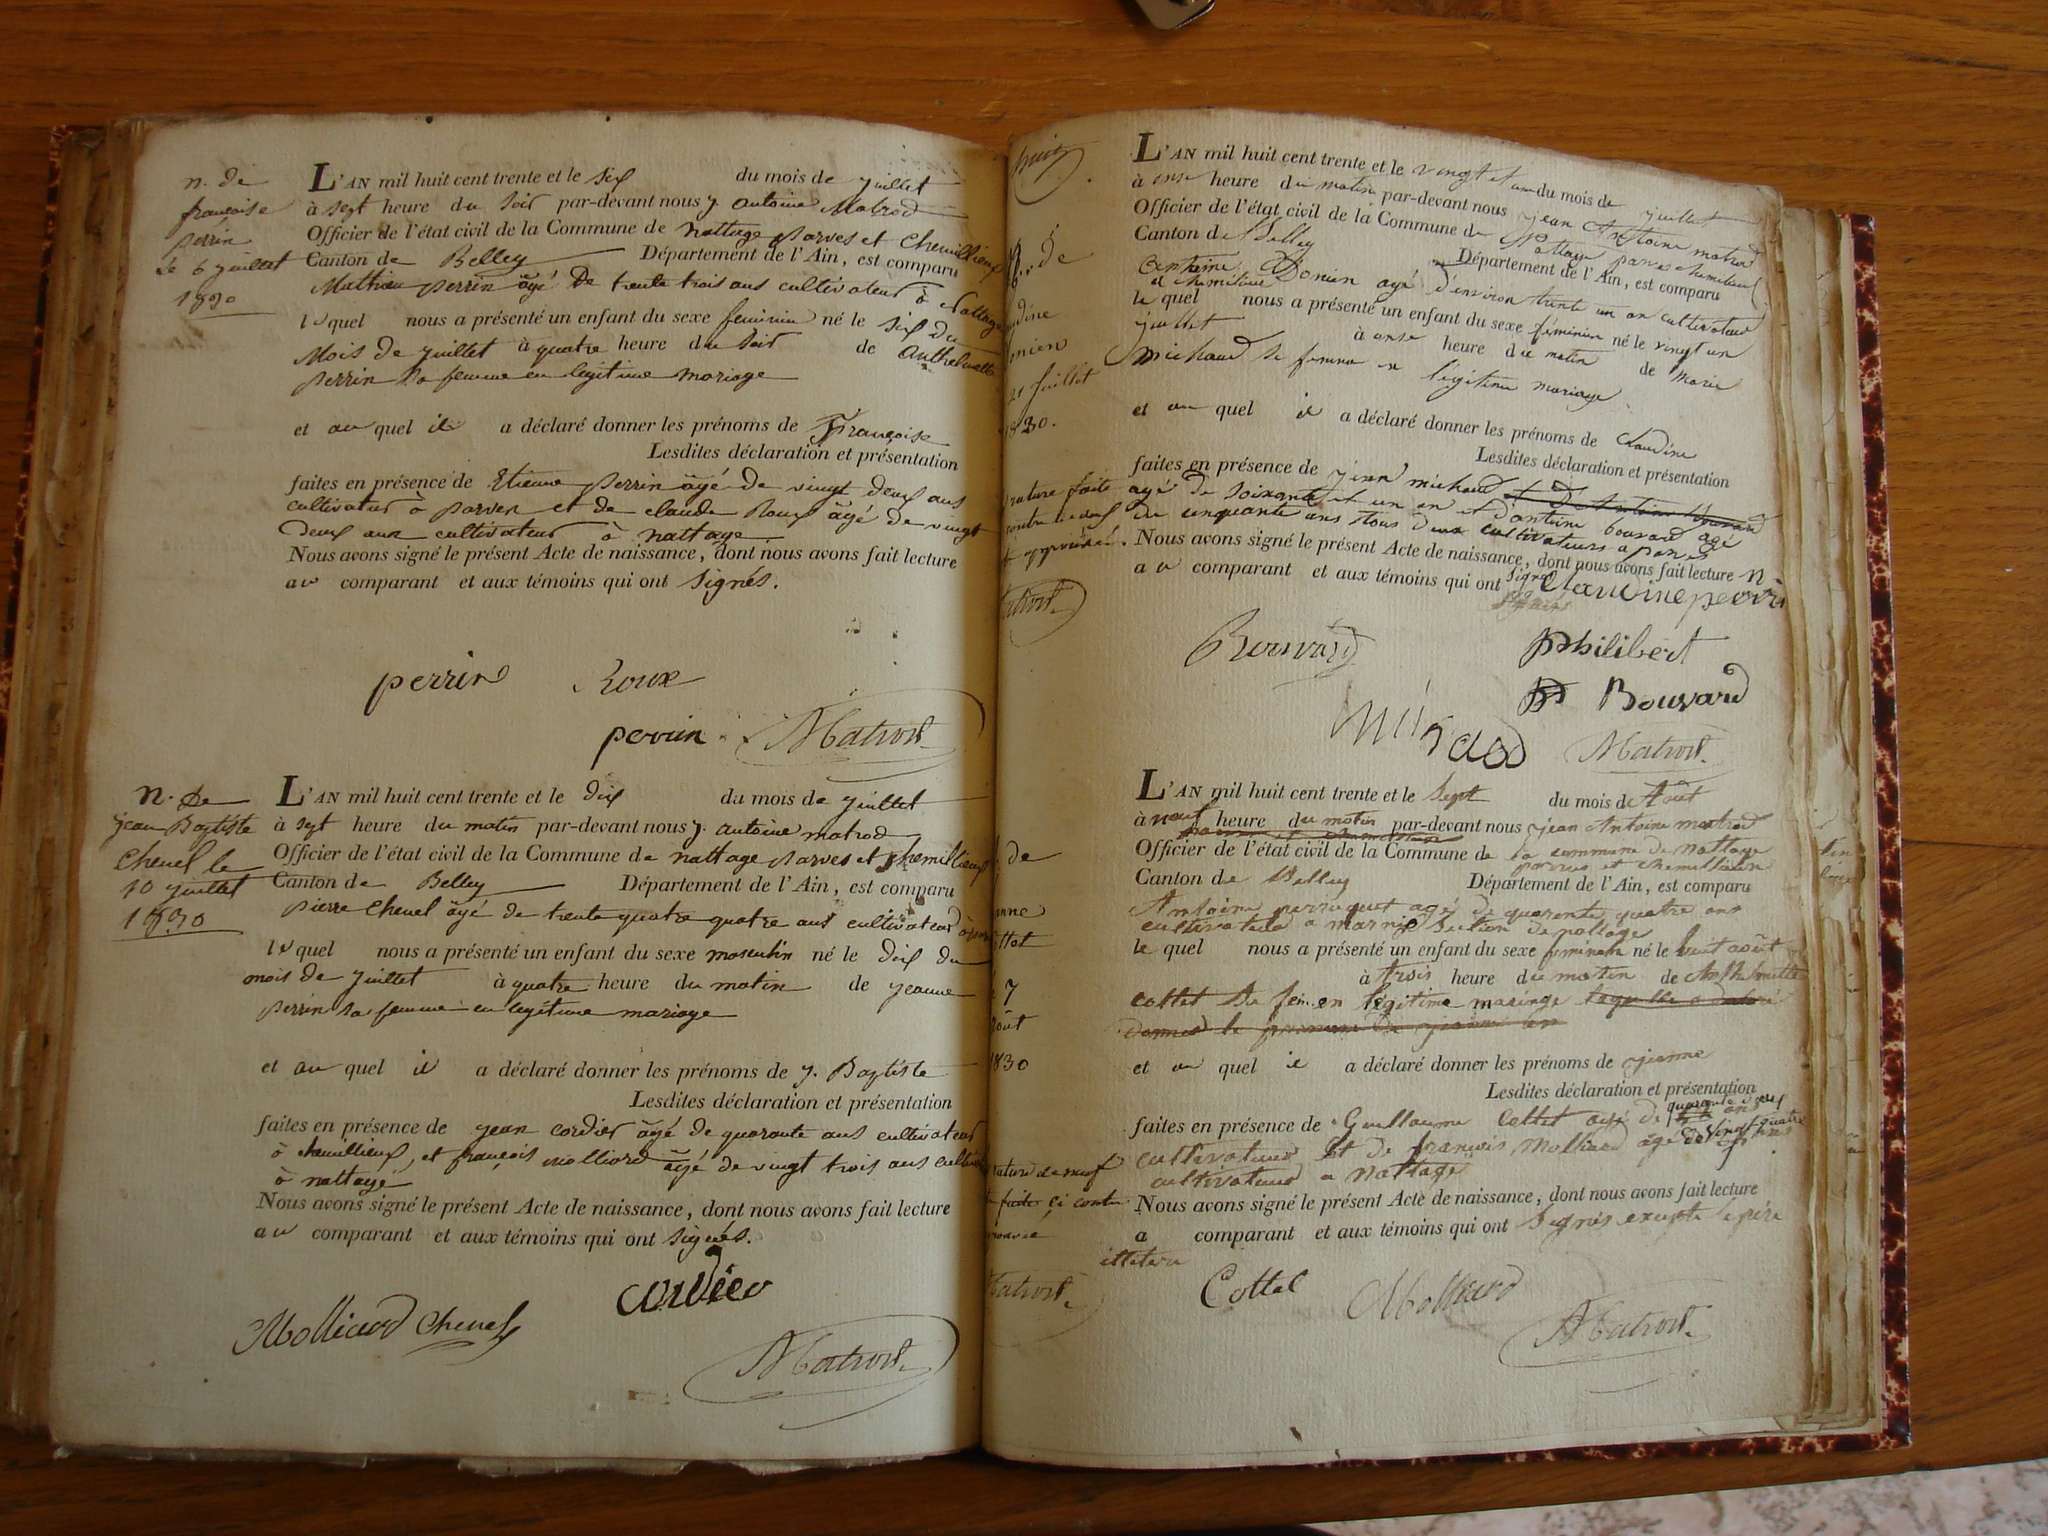 n. de
françoise
perrin
Le 6 juillet
1830
L'AN mil huit cent trente et le six du mois de juillet
à sept heure du soir par-devant nous j. antoine Matrod
Officier de l'état civil de la Commune de nattage parves et chemillieux
Canton de Belley Département de l'Ain, est comparu
Mathieu perrin âgé De trente trois ans cultivateur à Nattage
lequel nous a présenté un enfant du sexe feminin né le six du
Mois De juillet à quatre heure du soir de Anthelmette
perrin sa femme en legitime mariage
et au quel il a déclaré donner les prénoms de Françoise
Lesdites déclaration et présentation
faites en présence de Etienne perrin âgé de vingt deux ans
cultivateur à parves et de claude Roux âgé de vingt
Deux ans cultivateur à nattage
Nous avons signé le présent Acte de naissance, dont nous avons fait lecture
au comparant et aux témoins qui ont signés.
perrin Roux
perrin Matrod
n. De
jean Baptiste
Chevel le
10 juillet
1830
L'AN mil huit cent trente et le dix du mois de juillet
à sept heure du matin par-devant nous j. antoine matrod
Officier de l'état civil de la Commune de nattage parves et chemillieux
Canton de Belley Département de l'Ain, est comparu
pierre Chevel âgé de trente quatre quatre ans cultivateur
lequel nous a présenté un enfant du sexe masculin né le dix du
mois de juillet à quatre heure du matin de jeanne
perrin sa femme en legitime mariage
et au quel il a déclaré donner les prénoms de j. Baptiste
Lesdites déclaration et présentation
faites en présence de jean cordier âgé de quarante ans cultivateur
à chemillieux, et françois molliard âgé de vingt trois ans
à nattage
Nous avons signé le présent Acte de naissance, dont nous avons fait lecture
au comparant et aux témoins qui ont signés.
cordier
Molliard Chevel
Matrod
21 juillet
1830.
Matrod
L'AN mil huit cent trente et le vingt et un du mois de juillet
à onse heure du matin par-devant nous jean Antoine matrod
Officier de l'état civil de la Commune de Nattage parves chemilieu
Canton de Belley Département de l'Ain, est comparu
Antheme Donien agé d'environ trente un an cultivateur
a chemilieu
le quel nous a présenté un enfant du sexe féminin né le vingt un
juillet à onse heure du matin de Marie
michaud sa femme en légitime mariage
et au quel il a déclaré donner les prénoms de Claudine
Lesdites déclaration et présentation
faites en présence de jean michaud et D'Antoine Bouvard
agé De soixante et un an et d'antoine bouvard agé
de cinquante ans tous deux cultivateurs a parves
Nous avons signé le présent Acte de naissance, dont nous avons fait lecture
au comparant et aux témoins qui ont signés
Claudine perrin
Bouvard Philibert
Bouvard
Michaod Matrod
7
août
1830
Matrod
L'AN mil huit cent trente et le Sept du mois de Août
à neuf heure du matin par-devant nous jean Antoine matrod
Officier de l'état civil de la Commune de la commune de nattage
parves et chemillieu
Canton de Belley Département de l'Ain, est comparu
Antoine perruquet agé de quarente quatre ans
cultivateur a section de nattage
le quel nous a présenté un enfant du sexe feminin né le août
à trois heure du matin de Anthelmette
Cottet Sa fem. en legitime mariage laquelle a déclaré
donner le prenom de jeanne
et au quel il a déclaré donner les prénoms de jienne
Lesdites déclaration et présentation
faites en présence de Guillaume Cottet agé de quarante neuf ans
cultivateur Et de françois Molliard agé de vingt quatre ans
cultivateur a Nattage
Nous avons signé le présent Acte de naissance, dont nous avons fait lecture
a comparant et aux témoins qui ont Signés excepte le père
illeteré
Cottet Molliard
Matrod